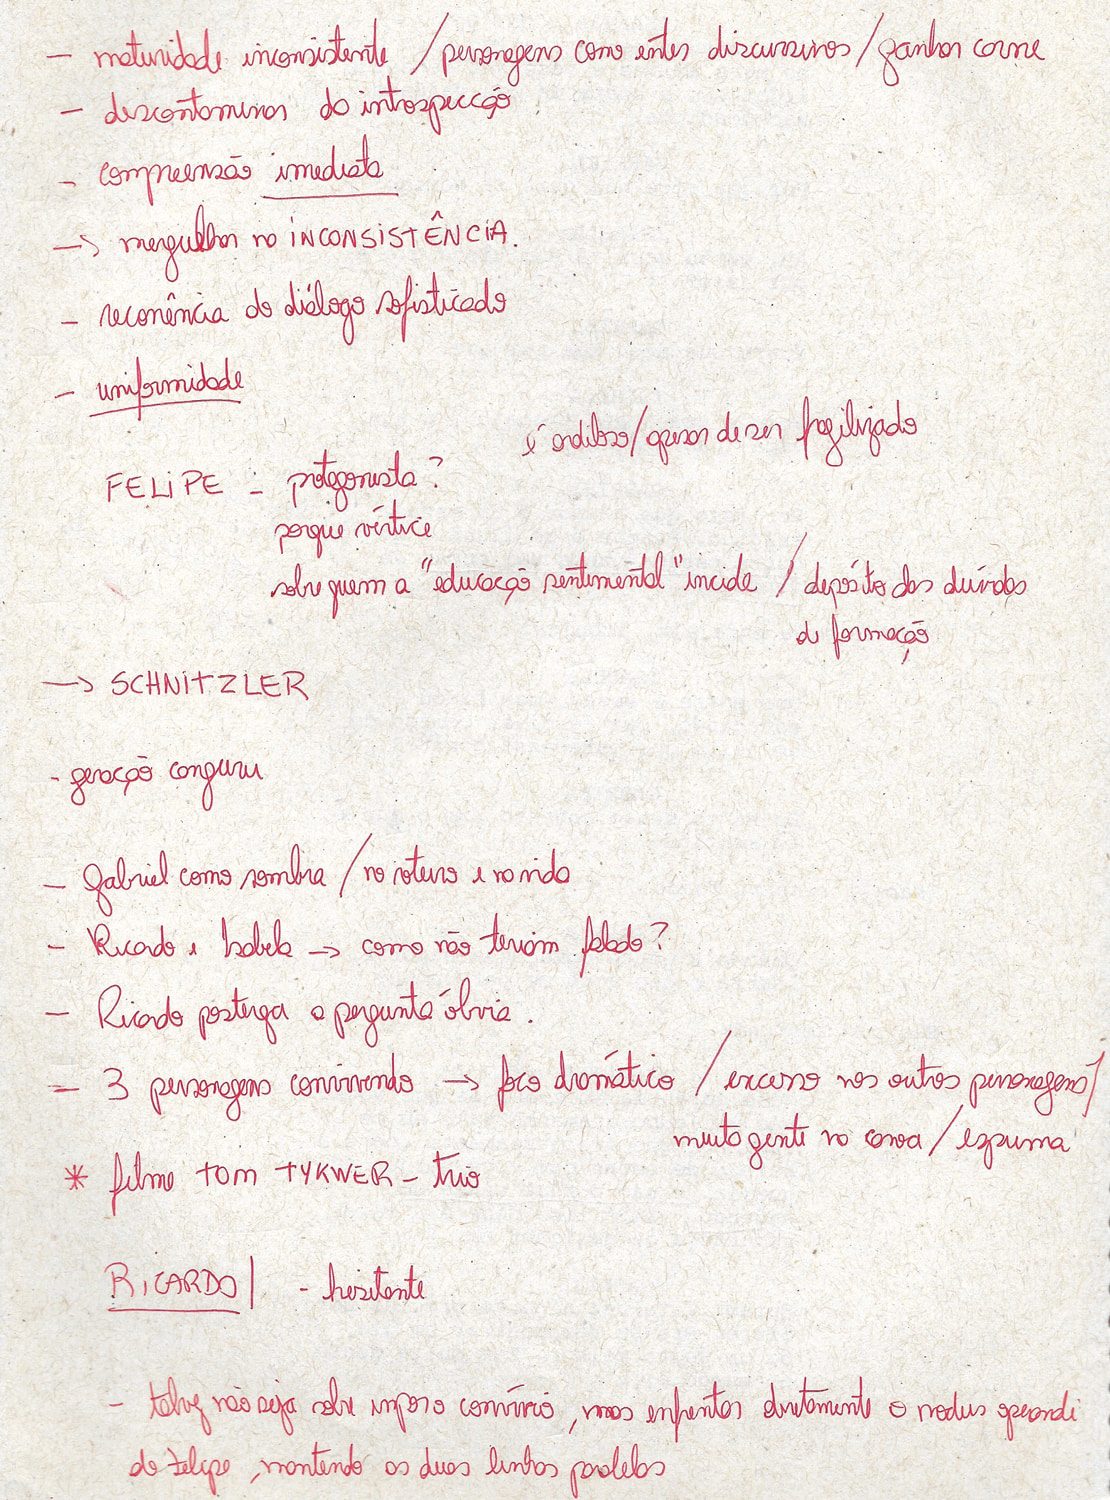 - maturidade inconsistente / personagens como entes discursivos / ganhar carne
- descontarmos da introspecção
- compreensão imediata
-> mergulhar na INCONSISTÊNCIA.
- recorrência do diálogo sofisticado
- uniformidade
é ardiloso / apesar de ser fragilizado
FELIPE - protagonista?
porque vértice
sobre quem a "educação sentimental" incide / depósito das dúvidas
de formação
-> SCHNITZLER
- geração canguru
- Gabriel como sombra / no roteiro e na vida
- Ricardo e Isabela -> como não teriam falado?
- Ricardo posterga a pergunta óbvia.
- 3 personagens convivendo -> foco dramático / excesso nos outros personagens /
muita gente na canoa / espuma
* filme TOM TYKWER - trio
RICARDO | - hesitante
- talvez não seja sobre convívio, mas enfrentar diretamente o modus operandi
de Felipe, mantendo as duas linhas paralelas